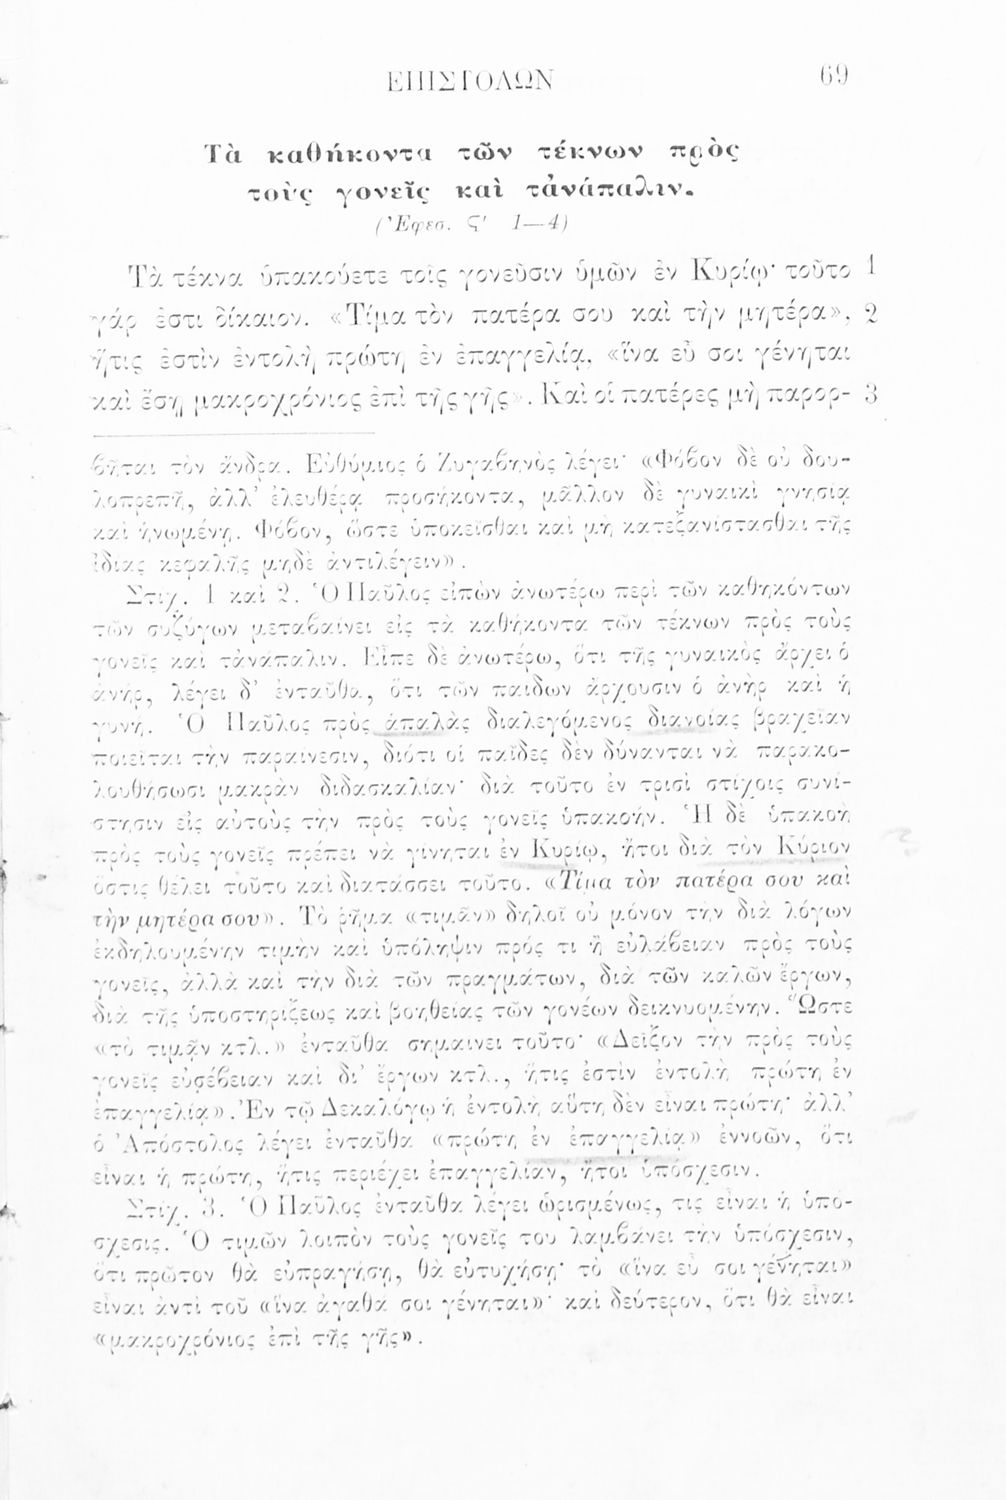 ΕΠΙΣΤΟΛΩΝ 69
Τὰ καθήκοντα τῶν τέκνων πρὸς
τοὺς γονεῖς καὶ τἀνάπαλιν.
(Ἐφεσ. Ϛ' 1—4)
Τὰ τέκνα ὑπακούετε τοῖς γονεῦσιν ὑμῶν ἐν Κυρίῳ· τοῦτο 1
γάρ ἐστι δίκαιον. «Τίμα τὸν πατέρα σου καὶ τὴν μητέρα», 2
ἥτις ἐστὶν ἐντολὴ πρώτη ἐν ἐπαγγελίᾳ, «ἵνα εὖ σοι γένηται
καὶ ἔσῃ μακροχρόνιος ἐπὶ τῆς γῆς». Καὶ οἱ πατέρες μὴ παρορ- 3
βῆται τὸν ἄνδρα. Εὐθύμιος ὁ Ζυγαβηνὸς λέγει· «Φόβον δὲ οὐ δου-
λοπρεπῆ, ἀλλ' ἐλευθέρᾳ προσήκοντα, μᾶλλον δὲ γυναικὶ γνησίᾳ
καὶ ἡνωμένῃ. Φόβον, ὥστε ὑποκεῖσθαι καὶ μὴ κατεξανίστασθαι τῆς
ἰδίας κεφαλῆς μηδὲ ἀντιλέγειν».
Στίχ. 1 καὶ 2. Ὁ Παῦλος εἰπὼν ἀνωτέρω περὶ τῶν καθηκόντων
τῶν συζύγων μεταβαίνει εἰς τὰ καθήκοντα τῶν τέκνων πρὸς τοὺς
γονεῖς καὶ τἀνάπαλιν. Εἶπε δὲ ἀνωτέρω, ὅτι τῆς γυναικὸς ἄρχει ὁ
ἀνήρ, λέγει δ' ἐνταῦθα, ὅτι τῶν παίδων ἄρχουσιν ὁ ἀνὴρ καὶ ἡ
γυνή. Ὁ Παῦλος πρὸς ἁπαλὰς διαλεγόμενος διανοίας βραχεῖαν
ποιεῖται τὴν παραίνεσιν, διότι οἱ παῖδες δὲν δύνανται νὰ παρακο-
λουθήσωσι μακρὰν διδασκαλίαν· διὰ τοῦτο ἐν τρισὶ στίχοις συνί-
στησιν εἰς αὐτοὺς τὴν πρὸς τοὺς γονεῖς ὑπακοήν. Ἡ δὲ ὑπακοὴ
πρὸς τοὺς γονεῖς πρέπει νὰ γίνηται ἐν Κυρίῳ, ἤτοι διὰ τὸν Κύριον
ὅστις θέλει τοῦτο καὶ διατάσσει τοῦτο. «Τίμα τὸν πατέρα σου καὶ
τὴν μητέρα σου». Τὸ ῥῆμα «τιμᾶν» δηλοῖ οὐ μόνον τὴν διὰ λόγων
ἐκδηλουμένην τιμὴν καὶ ὑπόληψιν πρός τι ἢ εὐλάβειαν πρὸς τοὺς
γονεῖς, ἀλλὰ καὶ τὴν διὰ τῶν πραγμάτων, διὰ τῶν καλῶν ἔργων,
διὰ τῆς ὑποστηρίξεως καὶ βοηθείας τῶν γονέων δεικνυομένην. Ὥστε
«τὸ τιμᾶν κτλ.» ἐνταῦθα σημαίνει τοῦτο· «Δεῖξον τὴν πρὸς τοὺς
γονεῖς εὐσέβειαν καὶ δι' ἔργων κτλ., ἥτις ἐστὶν ἐντολὴ πρώτη ἐν
ἐπαγγελίᾳ». Ἐν τῷ Δεκαλόγῳ ἡ ἐντολὴ αὕτη δὲν εἶναι πρώτη· ἀλλ'
ὁ Ἀπόστολος λέγει ἐνταῦθα «πρώτη ἐν ἐπαγγελίᾳ» ἐννοῶν, ὅτι
εἶναι ἡ πρώτη, ἥτις περιέχει ἐπαγγελίαν, ἤτοι ὑπόσχεσιν.
Στίχ. 3. Ὁ Παῦλος ἐνταῦθα λέγει ὡρισμένως, τίς εἶναι ἡ ὑπό-
σχεσις. Ὁ τιμῶν λοιπὸν τοὺς γονεῖς του λαμβάνει τὴν ὑπόσχεσιν,
ὅτι πρῶτον θὰ εὐπραγήσῃ, θὰ εὐτυχήσῃ· τὸ «ἵνα εὖ σοι γένηται»
εἶναι ἀντὶ τοῦ «ἵνα ἀγαθά σοι γένηται»· καὶ δεύτερον, ὅτι θὰ εἶναι
«μακροχρόνιος ἐπὶ τῆς γῆς».